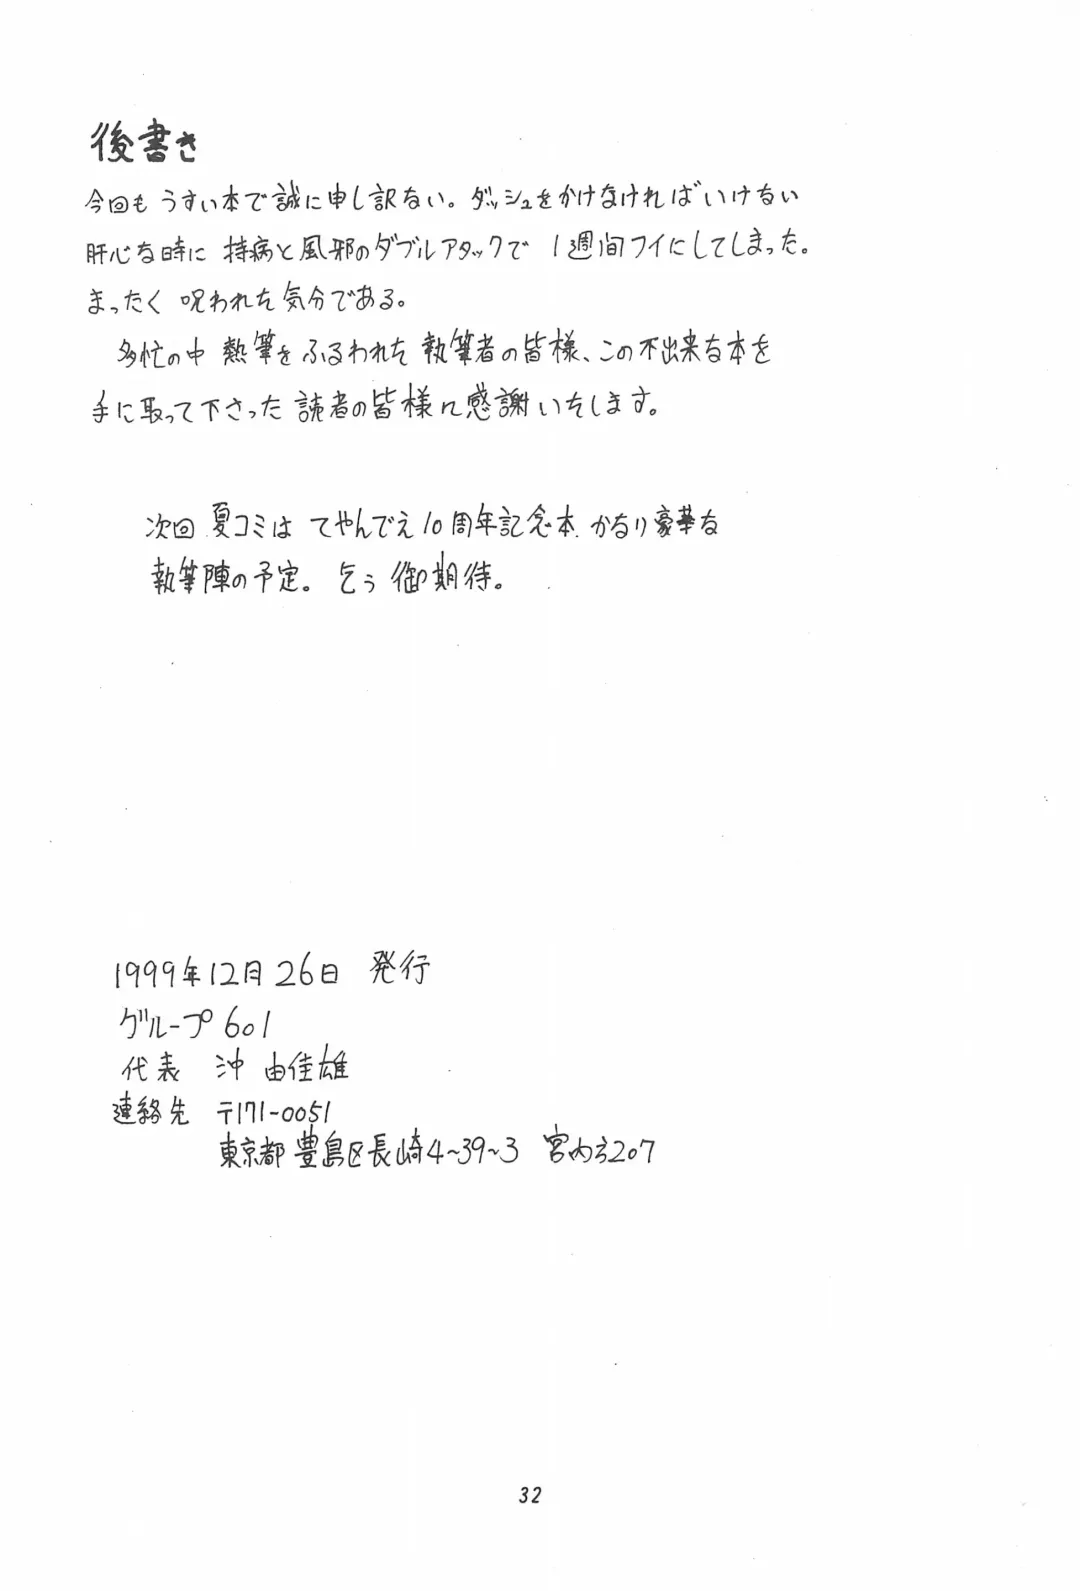 後書き
今回も うすい本で誠に申し訳ない。ダッシュをかけなければいけない
肝心な時に 持病と風邪のダブルアタックで 1週間フイにしてしまった。
まったく 呪われた気分である。
多忙の中 熱筆をふるわれた執筆者の皆様、この不出来な本を
手に取って下さった 読者の皆様に感謝いたします。
次回 夏コミは てやんでえ10周年記念本. かなり豪華な
執筆陣の予定。 乞う 御期待。
1999年12月26日 発行
グループ601
代表 沖 由佳雄
連絡先 〒171-0051
東京都豊島区長崎4~39~3 宮内方207
32